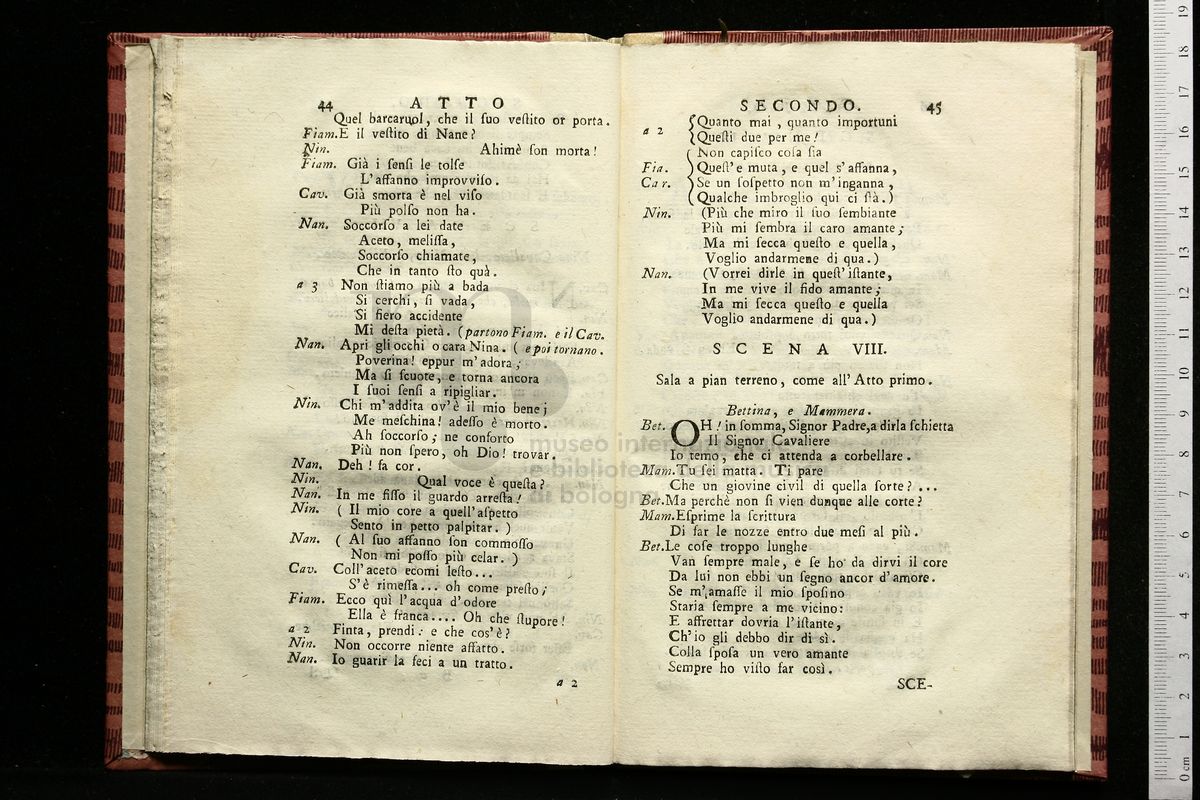 44 ATTO
Quel barcaruol, che il ſuo veſtito or porta.
Fiam. E il veſtito di Nane?
Nin. Ahimè ſon morta!
Fiam. Già i ſenſi le tolſe
L'affanno improvviſo.
Cav. Già smorta è nel viſo
Più polſo non ha.
Nan. Soccorſo a lei date
Aceto, meliſſa,
Soccorſo chiamate,
Che in tanto ſto quà.
a 3 Non ſtiamo più a bada
Si cerchi, ſi vada,
Si fiero accidente
Mi deſta pietà. (partono Fiam. e il Cav.
Nan. Apri gli occhi o cara Nina. ( e poi tornano.
Poverina! eppur m'adora;
Ma ſi ſcuote, e torna ancora
I ſuoi ſenſi a ripigliar.
Nin. Chi m'addita ov'è il mio bene;
Me meſchina! adeſſo è morto.
Ah ſoccorſo; ne conforto
Più non ſpero, oh Dio! trovar.
Nan. Deh! fa cor.
Nin. Qual voce è queſta?
Nan. In me fiſſo il guardo arreſta!
Nin. ( Il mio core a quell'aſpetto
Sento in petto palpitar. )
Nan. ( Al ſuo affanno ſon commoſſo
Non mi poſſo più celar. )
Cav. Coll'aceto ecomi leſto...
S'è rimeſſa... oh come preſto;
Fiam. Ecco quì l'acqua d'odore
Ella è franca.... Oh che ſtupore!
a 2 Finta, prendi: e che cos'è?
Nin. Non occorre niente affatto.
Nan. Io guarir la feci a un tratto.
a 2
SECONDO. 45
a 2 Quanto mai, quanto importuni
Queſti due per me!
Non capiſco coſa ſia
Fia. Queſt'e muta, e quel s'affanna,
Car. Se un ſoſpetto non m'inganna,
Qualche imbroglio qui ci ſtà.)
Nin. (Più che miro il ſuo ſembiante
Più mi ſembra il caro amante;
Ma mi ſecca queſto e quella,
Voglio andarmene di qua.)
Nan. (Vorrei dirle in queſt'iſtante,
In me vive il fido amante;
Ma mi ſecca queſto e quella
Voglio andarmene di qua.)
SCENA VIII.
Sala a pian terreno, come all'Atto primo.
Bettina, e Mammera.
Bet. OH! in ſomma, Signor Padre, a dirla ſchietta
Il Signor Cavaliere
Io temo, che ci attenda a corbellare.
Mam. Tu ſei matta. Ti pare
Che un giovine civil di quella ſorte? ...
Bet. Ma perchè non ſi vien dunque alle corte?
Mam. Eſprime la ſcrittura
Di far le nozze entro due meſi al più.
Bet. Le coſe troppo lunghe
Van ſempre male, e ſe ho da dirvi il core
Da lui non ebbi un ſegno ancor d'amore.
Se m'amaſſe il mio ſpoſino
Staria ſempre a me vicino:
E affrettar dovria l'iſtante,
Ch'io gli debbo dir di sì.
Colla ſpoſa un vero amante
Sempre ho viſto far così.
SCE-